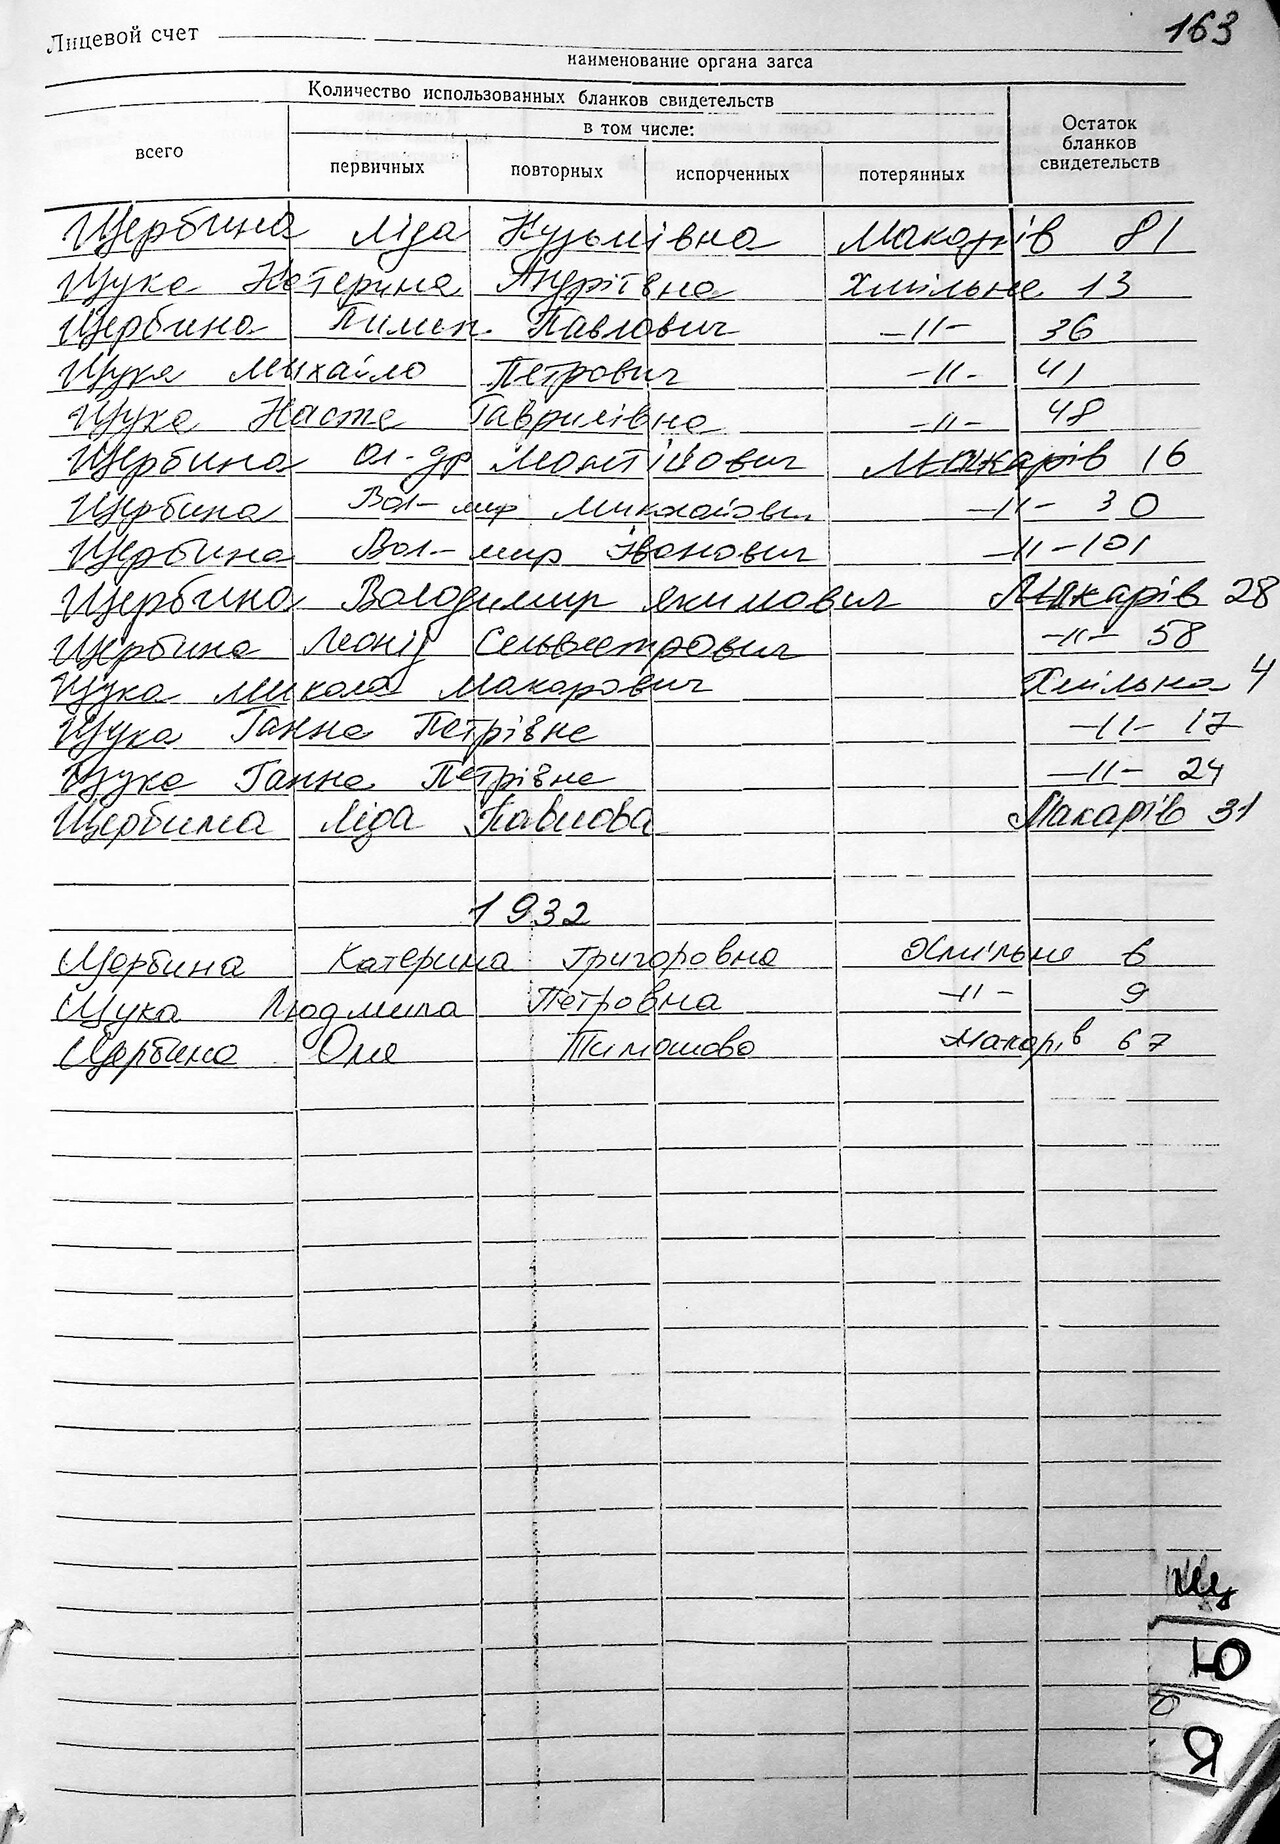 163
Лицевой счет
наименование органа загса
Количество использованных бланков свидетельств
в том числе:
всего
первичных
повторных
испорченных
потерянных
Остаток
бланков
свидетельств
Щербина Ліда Кузьмівна Макарів 81
Щука Катерина Андріївна Хмільна 13
Щербина Пимен Павлович -11- 36
Щука Михайло Петрович -11- 41
Щука Настя Гаврилівна -11- 48
Щербина Ол-др Макарів 16
Щербина Вол-мир Михайлович -11- 30
Щербина Вол-мир Іванович -11- 101
Щербина Володимир Якимович Макарів 28
Щербина Леонід Сельвестрович -11- 58
Щука Микола Макарович Хмільна 4
Щука Ганна Петрівна -11- 17
Щука Ганна Петрівна -11- 24
Щербина Ліда Павлова Макарів 31
1932
Щербина Катерина Григоровна Хмільна 6
Щука Людмила Петровна -11- 9
Щербина Оля Тимошова Макарів 67
Щ
Ю
Я